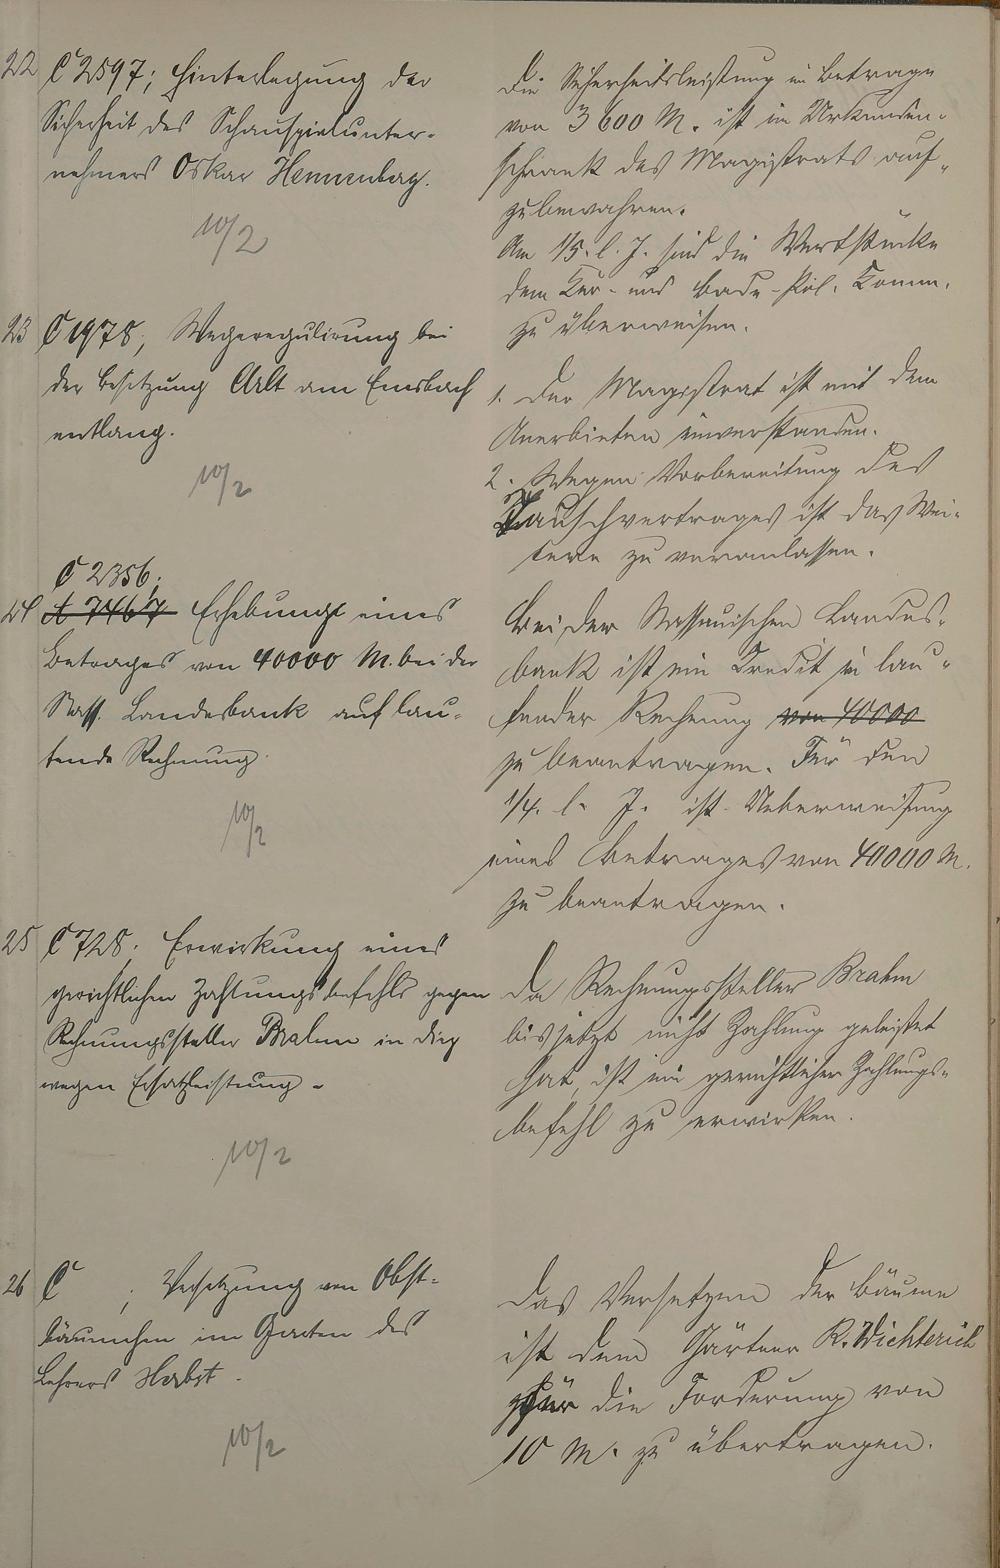 22 C 2597; Hinterlegung der
Sicherheit des Schauspielunter-
nehmers Oskar Hennenberg.
10/2
Die Sicherheitsleistung im Betrage
von 3600 M. ist im Urkunden-
schrank des Magistrats auf-
zubewahren.
Am 1/5. l. J. sind die Wertstücke
dem Kur- und Bade-Pol. Komm.
zu überweisen.
23 C 1978, Wegeregulirung bei
der Besitzung Alt am Emsbach
entlang.
10/2
1. Der Magistrat ist mit dem
Anerbieten einverstanden.
2. Wegen Vorbereitung des
Tauschvertrages ist das Wei-
tere zu veranlassen.
C 2356;
24 A 7467 Erhebung eines
Betrages von 40000 M. bei der
Nass. Landesbank auf lau-
fende Rechnung.
10/2
Bei der Nassauischen Landes-
bank ist ein Credit in lau-
fender Rechnung von 40000
zu beantragen. Für den
1/4. l. J. ist Ueberweisung
eines Betrages von 40000 M.
zu beantragen.
25 C 728, Erwirkung eines
gerichtlichen Zahlungsbefehls gegen
Rechnungssteller Brahm in Diez
wegen Ersatzleistung.
10/2
Da Rechnungssteller Brahm
bis jetzt nicht Zahlung geleistet
hat, ist ein gerichtlicher Zahlungs-
befehl zu erwirken.
26 C ; Versetzung von Obst-
bäumchen im Garten des
Lehrers Herbst.
10/2
Das Versetzen der Bäume
ist dem Gärtner R. Wichterich
für die Forderung von
10 M. zu übertragen.